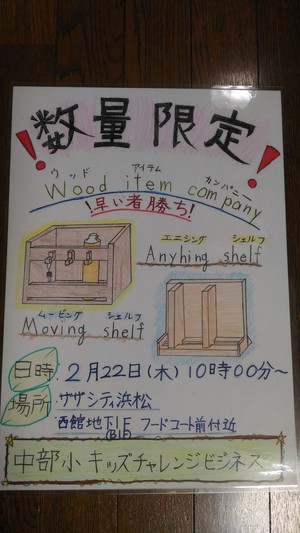 !数量限定!
ウッド アイテム カンパニー
Wood item company
!早い者勝ち!
エニシング シェルフ
Anyhing shelf
ムービング シェルフ
Moving shelf
日時:2月22日(木)10時00分~
場所:ザザシティ浜松
西館地下1F フードコート前付近
(B1F)
中部小キッズチャレンジビジネス